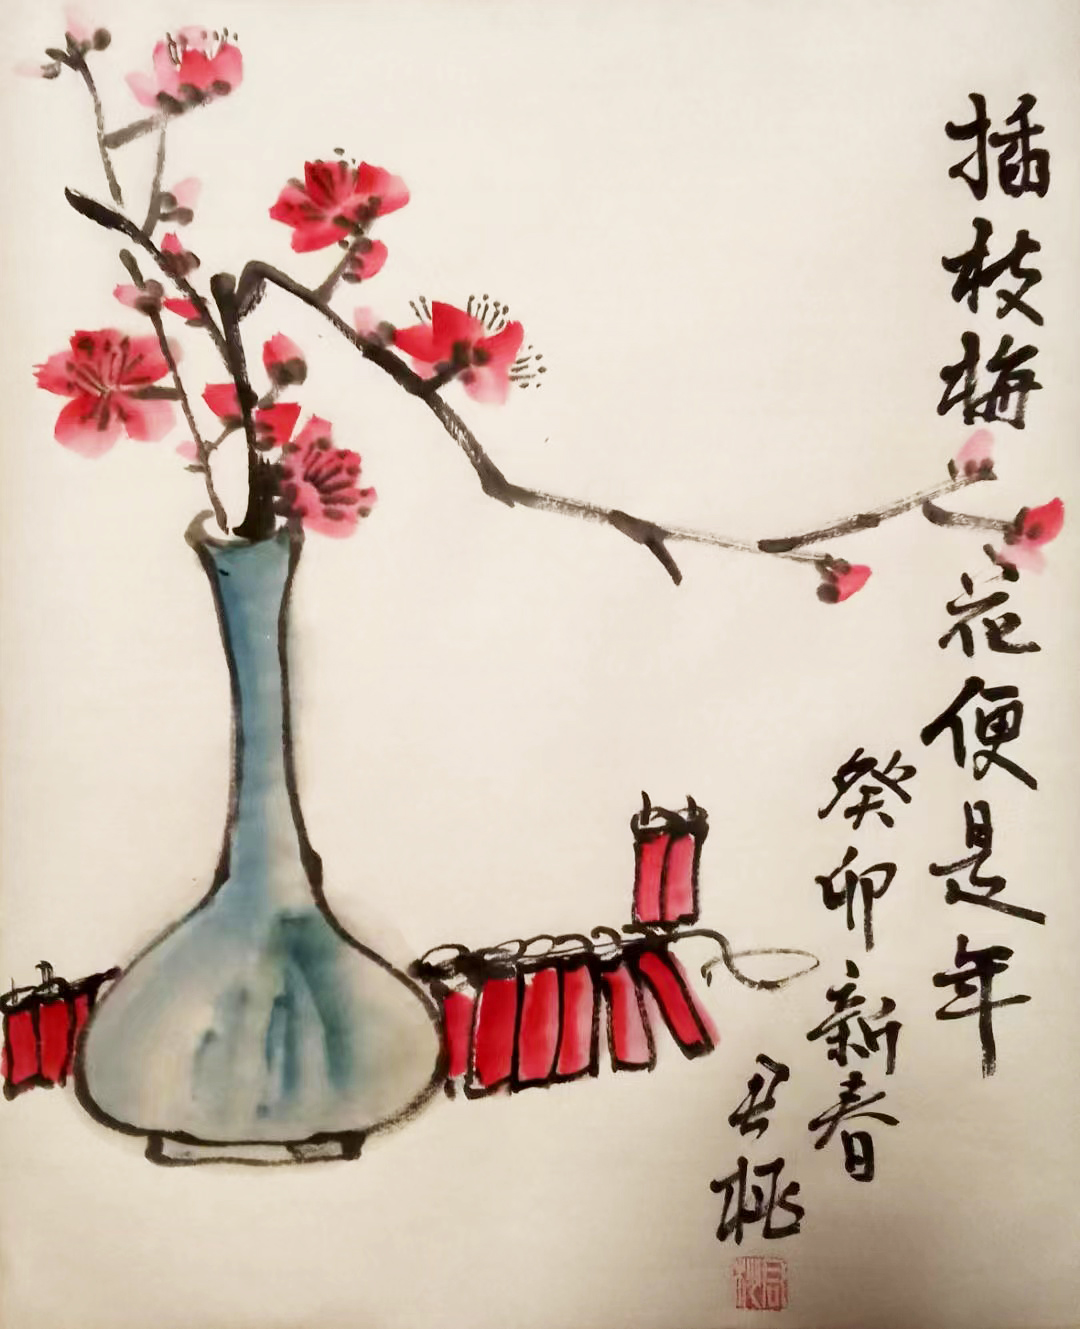 插枝梅花便是年
癸卯新春
君桃